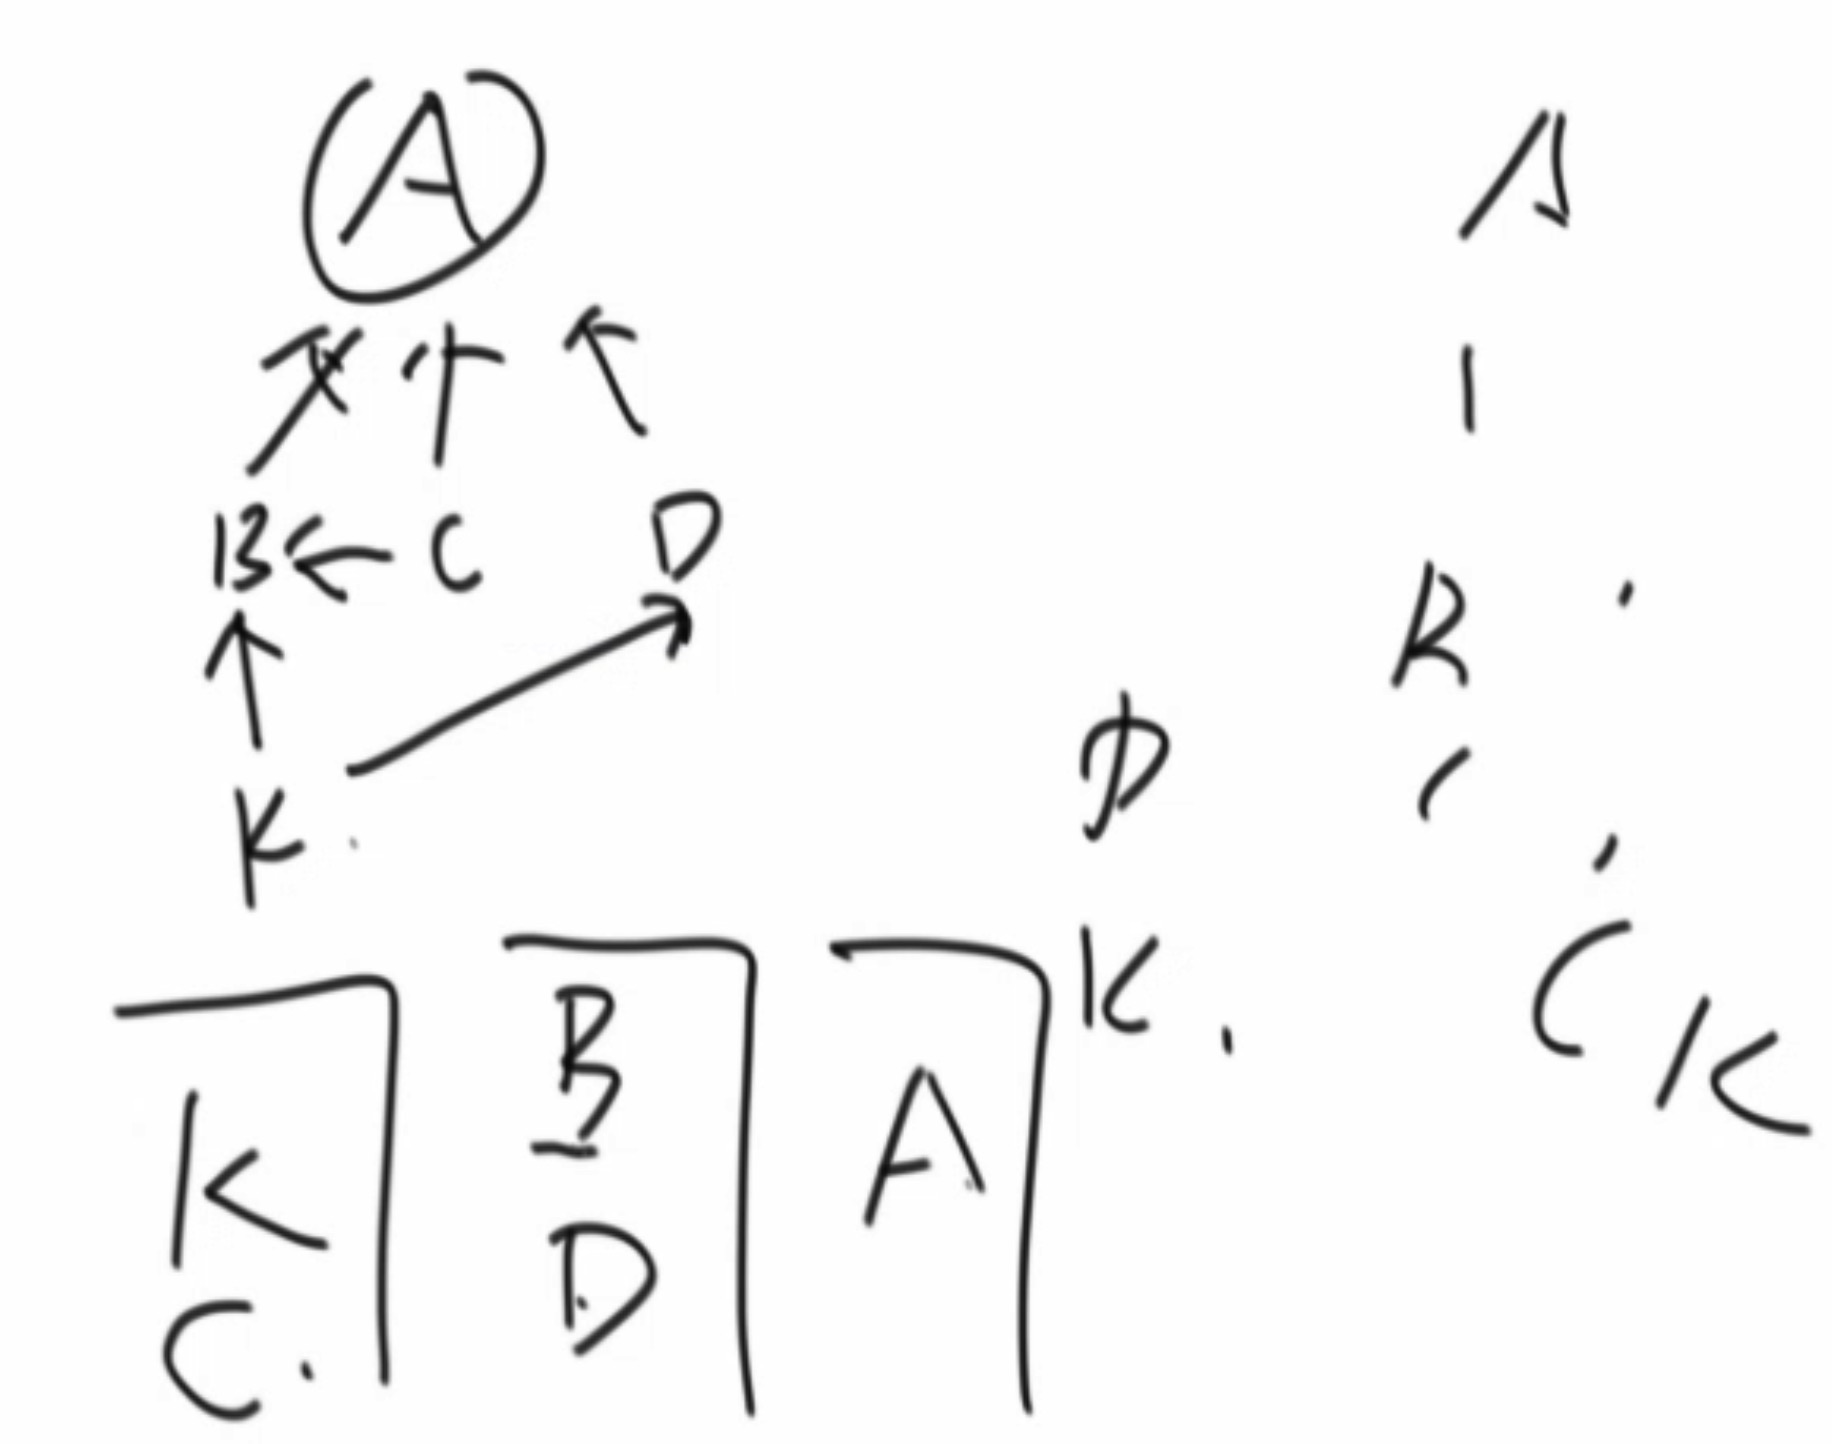 A
B C D
K.
K
C.
B
D
A
D
K.
A
B
C K